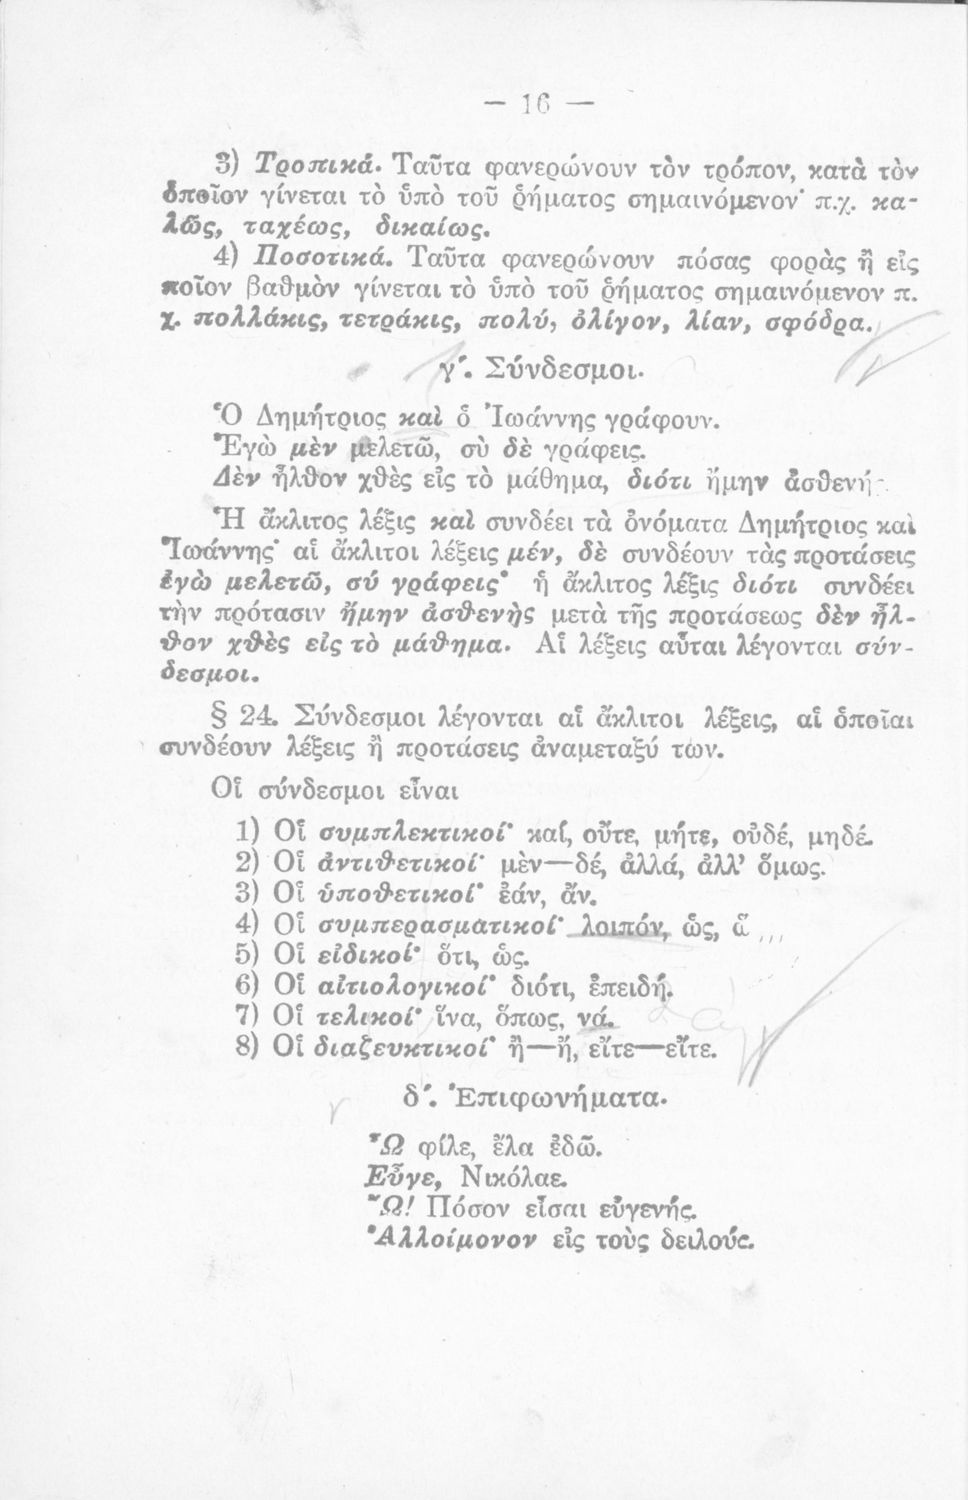 — 16 —
3) Τροπικά. Ταῦτα φανερώνουν τὸν τρόπον, κατὰ τὸν
ὁποῖον γίνεται τὸ ὑπὸ τοῦ ῥήματος σημαινόμενον· π.χ. κα-
λῶς, ταχέως, δικαίως.
4) Ποσοτικά. Ταῦτα φανερώνουν πόσας φορὰς ἢ εἰς
ποῖον βαθμὸν γίνεται τὸ ὑπὸ τοῦ ῥήματος σημαινόμενον π.
χ. πολλάκις, τετράκις, πολύ, ὀλίγον, λίαν, σφόδρα.
γ΄. Σύνδεσμοι.
Ὁ Δημήτριος καὶ ὁ Ἰωάννης γράφουν.
Ἐγὼ μὲν μελετῶ, σὺ δὲ γράφεις.
Δὲν ἦλθον χθὲς εἰς τὸ μάθημα, διότι ἤμην ἀσθενής.
Ἡ ἄκλιτος λέξις καὶ συνδέει τὰ ὀνόματα Δημήτριος καὶ
Ἰωάννης· αἱ ἄκλιτοι λέξεις μέν, δὲ συνδέουν τὰς προτάσεις
ἐγὼ μελετῶ, σύ γράφεις· ἡ ἄκλιτος λέξις διότι συνδέει
τὴν πρότασιν ἤμην ἀσθενὴς μετὰ τῆς προτάσεως δὲν ἦλ-
θον χθὲς εἰς τὸ μάθημα. Αἱ λέξεις αὗται λέγονται σύν-
δεσμοι.
§ 24. Σύνδεσμοι λέγονται αἱ ἄκλιτοι λέξεις, αἱ ὁποῖαι
συνδέουν λέξεις ἢ προτάσεις ἀναμεταξύ των.
Οἱ σύνδεσμοι εἶναι
1) Οἱ συμπλεκτικοί· καί, οὔτε, μήτε, οὐδέ, μηδέ.
2) Οἱ ἀντιθετικοί· μὲν—δέ, ἀλλά, ἀλλ’ ὅμως.
3) Οἱ ὑποθετικοί· ἐάν, ἄν.
4) Οἱ συμπερασματικοί· λοιπόν, ὡς,
5) Οἱ εἰδικοί· ὅτι, ὡς.
6) Οἱ αἰτιολογικοί· διότι, ἐπειδή.
7) Οἱ τελικοί· ἵνα, ὅπως, νά.
8) Οἱ διαζευκτικοί· ἢ—ἤ, εἴτε—εἴτε.
δ΄. Ἐπιφωνήματα.
Ὦ φίλε, ἔλα ἐδῶ.
Εὖγε, Νικόλαε.
Ὢ! Πόσον εἶσαι εὐγενής.
Ἀλλοίμονον εἰς τοὺς δειλούς.